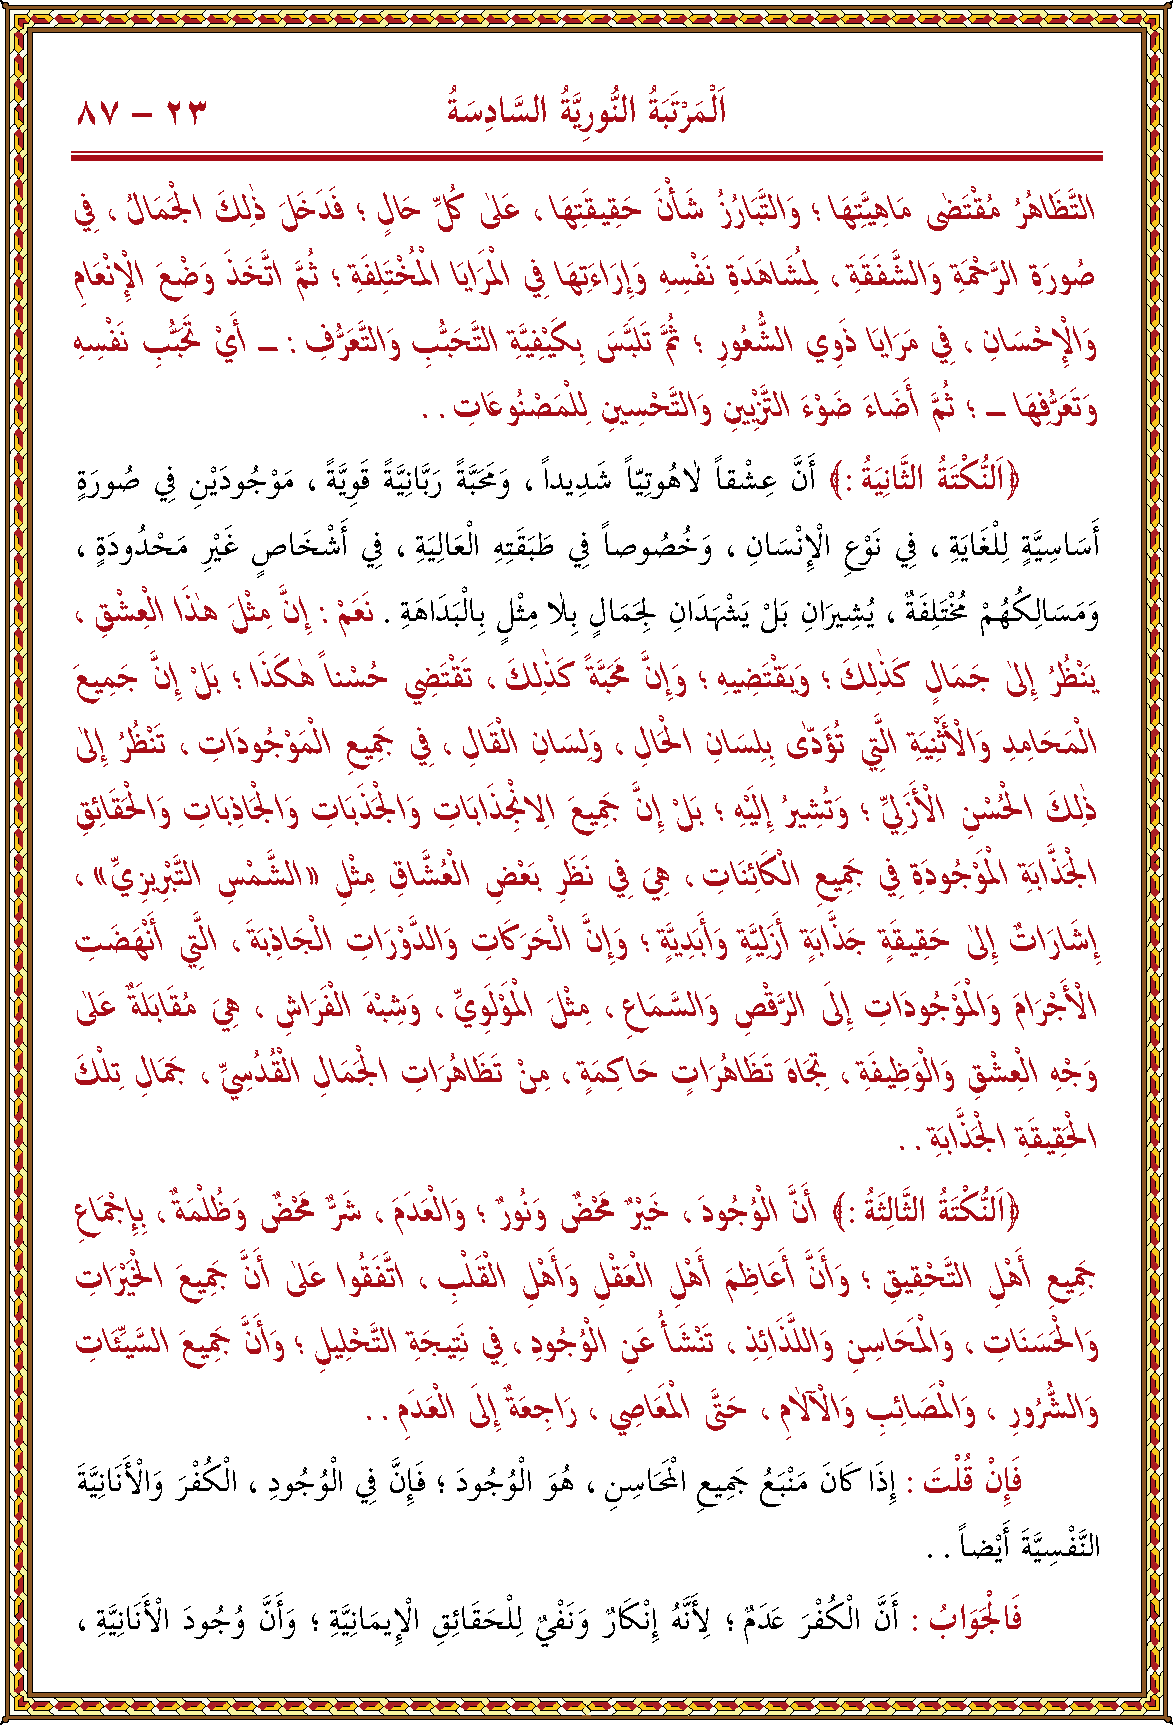 اَلْمَرْتَبَةُ النُّورِيَّةُ السَّادِسَةُ ٢٣ – ٨٧
التَّظَاهُرُ مُقْتَضٰى مَاهِيَّتِهَا ؛ وَالتَّبَارُزُ شَأْنَ حَقِيقِتِهَا ، عَلٰى كُلِّ حَالٍ ؛ فَدَخَلَ ذٰلِكَ الْجَمَالُ ، فِي
صُورَةِ الرَّحْمَةِ وَالشَّفَقَةِ ، لِمُشَاهَدَةِ نَفْسِهِ وَإِرَاءَتِهَا فِي الْمَرَايَا الْمُخْتَلِفَةِ ؛ ثُمَّ اتَّخَذَ وَضْعَ الْإِنْعَامِ
وَالْإِحْسَانِ ، فِي مَرَايَا ذَوِي الشُّعُورِ ؛ ثُمَّ تَلَبَّسَ بِكَيْفِيَّةِ التَّحَبُّبِ وَالتَّعَرُّفِ : ــ أَيْ تَحَبُّبِ نَفْسِهِ
وَتَعَرُّفِهَا ــ ؛ ثُمَّ أَضَاءَ ضَوْءَ التَّزْيِينِ وَالتَّحْسِينِ لِلْمَصْنُوعَاتِ . .
﴿اَلنُّكْتَةُ الثَّانِيَةُ :﴾ أَنَّ عِشْقاً لَاهُوتِيّاً شَدِيداً ، وَمَحَبَّةً رَبَّانِيَّةً قَوِيَّةً ، مَوْجُودَيْنِ فِي صُورَةٍ
أَسَاسِيَّةٍ لِلْغَايَةِ ، فِي نَوْعِ الْإِنْسَانِ ، وَخُصُوصاً فِي طَبَقَتِهِ الْعَالِيَةِ ، فِي أَشْخَاصٍ غَيْرِ مَحْدُودَةٍ ،
وَمَسَالِكُهُمْ مُخْتَلِفَةٌ ، يُشِيرَانِ بَلْ يَشْهَدَانِ لِجَمَالٍ بِلَا مِثْلٍ بِالْبَدَاهَةِ . نَعَمْ : إِنَّ مِثْلَ هٰذَا الْعِشْقِ ،
يَنْظُرُ إِلٰى جَمَالٍ كَذٰلِكَ ؛ وَيَقْتَضِيهِ ؛ وَإِنَّ مَحَبَّةً كَذٰلِكَ ، تَقْتَضِي حُسْناً هٰكَذَا ؛ بَلْ إِنَّ جَمِيعَ
الْمَحَامِدِ وَالْأَثْنِيَةِ الَّتِي تُؤَدّٰى بِلِسَانِ الْحَالِ ، وَلِسَانِ الْقَالِ ، فِي جَمِيعِ الْمَوْجُودَاتِ ، تَنْظُرُ إِلٰى
ذٰلِكَ الْحُسْنِ الْأَزَلِيِّ ؛ وَتُشِيرُ إِلَيْهِ ؛ بَلْ إِنَّ جَمِيعَ الِانْجِذَابَاتِ وَالْجَذَبَاتِ وَالْجَاذِبَاتِ وَالْحَقَائِقِ
الْجَذَّابَةِ الْمَوْجُودَةِ فِي جَمِيعِ الْكَائِنَاتِ ، هِيَ فِي نَظَرِ بَعْضِ الْعُشَّاقِ مِثْلِ «الشَّمْسِ التَّبْرِيزِيِّ» ،
إِشَارَاتٌ إِلٰى حَقِيقَةٍ جَذَّابَةٍ أَزَلِيَّةٍ وَأَبَدِيَّةٍ ؛ وَإِنَّ الْحَرَكَاتِ وَالدَّوْرَاتِ الْجَاذِبَةَ ، الَّتِي أَنْهَضَتِ
الْأَجْرَامَ وَالْمَوْجُودَاتِ إِلَى الرَّقْصِ وَالسَّمَاعِ ، مِثْلَ الْمَوْلَوِيِّ ، وَشِبْهَ الْفَرَاشِ ، هِيَ مُقَابَلَةٌ عَلٰى
وَجْهِ الْعِشْقِ وَالْوَظِيفَةِ ، تِجَاهَ تَظَاهُرَاتٍ حَاكِمَةٍ ، مِنْ تَظَاهُرَاتِ الْجَمَالِ الْقُدُسِيِّ ، جَمَالِ تِلْكَ
الْحَقِيقَةِ الْجَذَّابَةِ . .
﴿اَلنُّكْتَةُ الثَّالِثَةُ :﴾ أَنَّ الْوُجُودَ ، خَيْرٌ مَحْضٌ وَنُورٌ ؛ وَالْعَدَمَ ، شَرٌّ مَحْضٌ وَظُلْمَةٌ ، بِإِجْمَاعِ
جَمِيعِ أَهْلِ التَّحْقِيقِ ؛ وَأَنَّ أَعَاظِمَ أَهْلِ الْعَقْلِ وَأَهْلِ الْقَلْبِ ، اتَّفَقُوا عَلٰى أَنَّ جَمِيعَ الْخَيْرَاتِ
وَالْحَسَنَاتِ ، وَالْمَحَاسِنِ وَاللَّذَائِذِ ، تَنْشَأُ عَنِ الْوُجُودِ ، فِي نَتِيجَةِ التَّحْلِيلِ ؛ وَأَنَّ جَمِيعَ السَّيِّئَاتِ
وَالشُّرُورِ ، وَالْمَصَائِبِ وَالْآلَامِ ، حَتَّى الْمَعَاصِي ، رَاجِعَةٌ إِلَى الْعَدَمِ . .
فَإِنْ قُلْتَ : إِذَا كَانَ مَنْبَعُ جَمِيعِ الْمَحَاسِنِ ، هُوَ الْوُجُودَ ؛ فَإِنَّ فِي الْوُجُودِ ، الْكُفْرَ وَالْأَنَانِيَّةَ
النَّفْسِيَّةَ أَيْضاً . .
فَالْجَوَابُ : أَنَّ الْكُفْرَ عَدَمٌ ؛ لِأَنَّهُ إِنْكَارٌ وَنَفْيٌ لِلْحَقَائِقِ الْإِيمَانِيَّةِ ؛ وَأَنَّ وُجُودَ الْأَنَانِيَّةِ ،